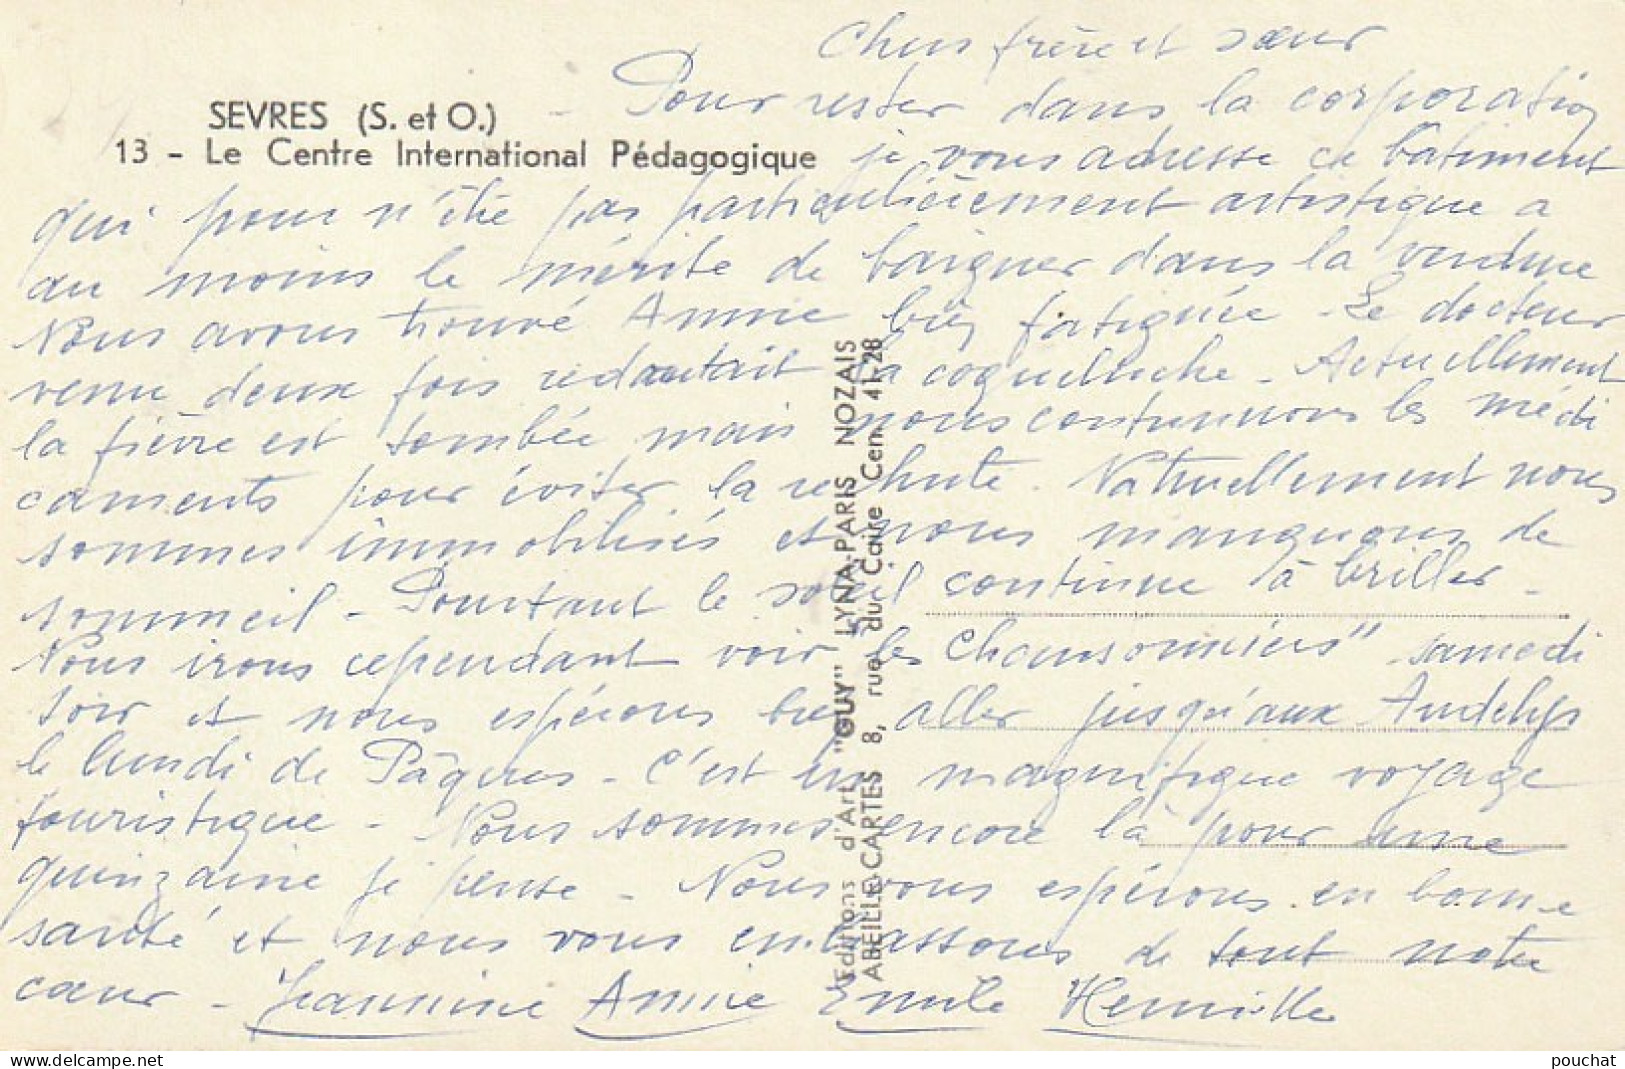 Chers frère et sœur
SEVRES (S. et O.)
13 - Le Centre International Pédagogique
- Pour rester dans la corporation
je vous adresse ce bâtiment
qui pour n'être pas particulièrement artistique a
au moins le mérite de baigner dans la verdure
Nous avons trouvé Annie bien fatiguée - Le docteur
venu deux fois redoutait la coqueluche - Actuellement
la fièvre est tombée mais nous continuons les médi
caments pour éviter la rechute. Naturellement nous
sommes immobilisés et nous manquons de
sommeil - Pourtant le soleil continue à briller -
Nous irons cependant voir les Chansonniers" samedi
soir et nous espérons bien aller jusqu'aux Andelys
le lundi de Pâques - C'est un magnifique voyage
touristique - Nous sommes encore là pour une
quinzaine je pense - Nous vous espérons en bonne
santé et nous vous embrassons de tout notre
cœur - Jeannine Annie Emile
Editions d'Art "GUY" LYNA-PARIS NOZAIS
ABEILLE-CARTES 8, rue du Caire Cen. 41-28
pouchat
www.delcampe.net